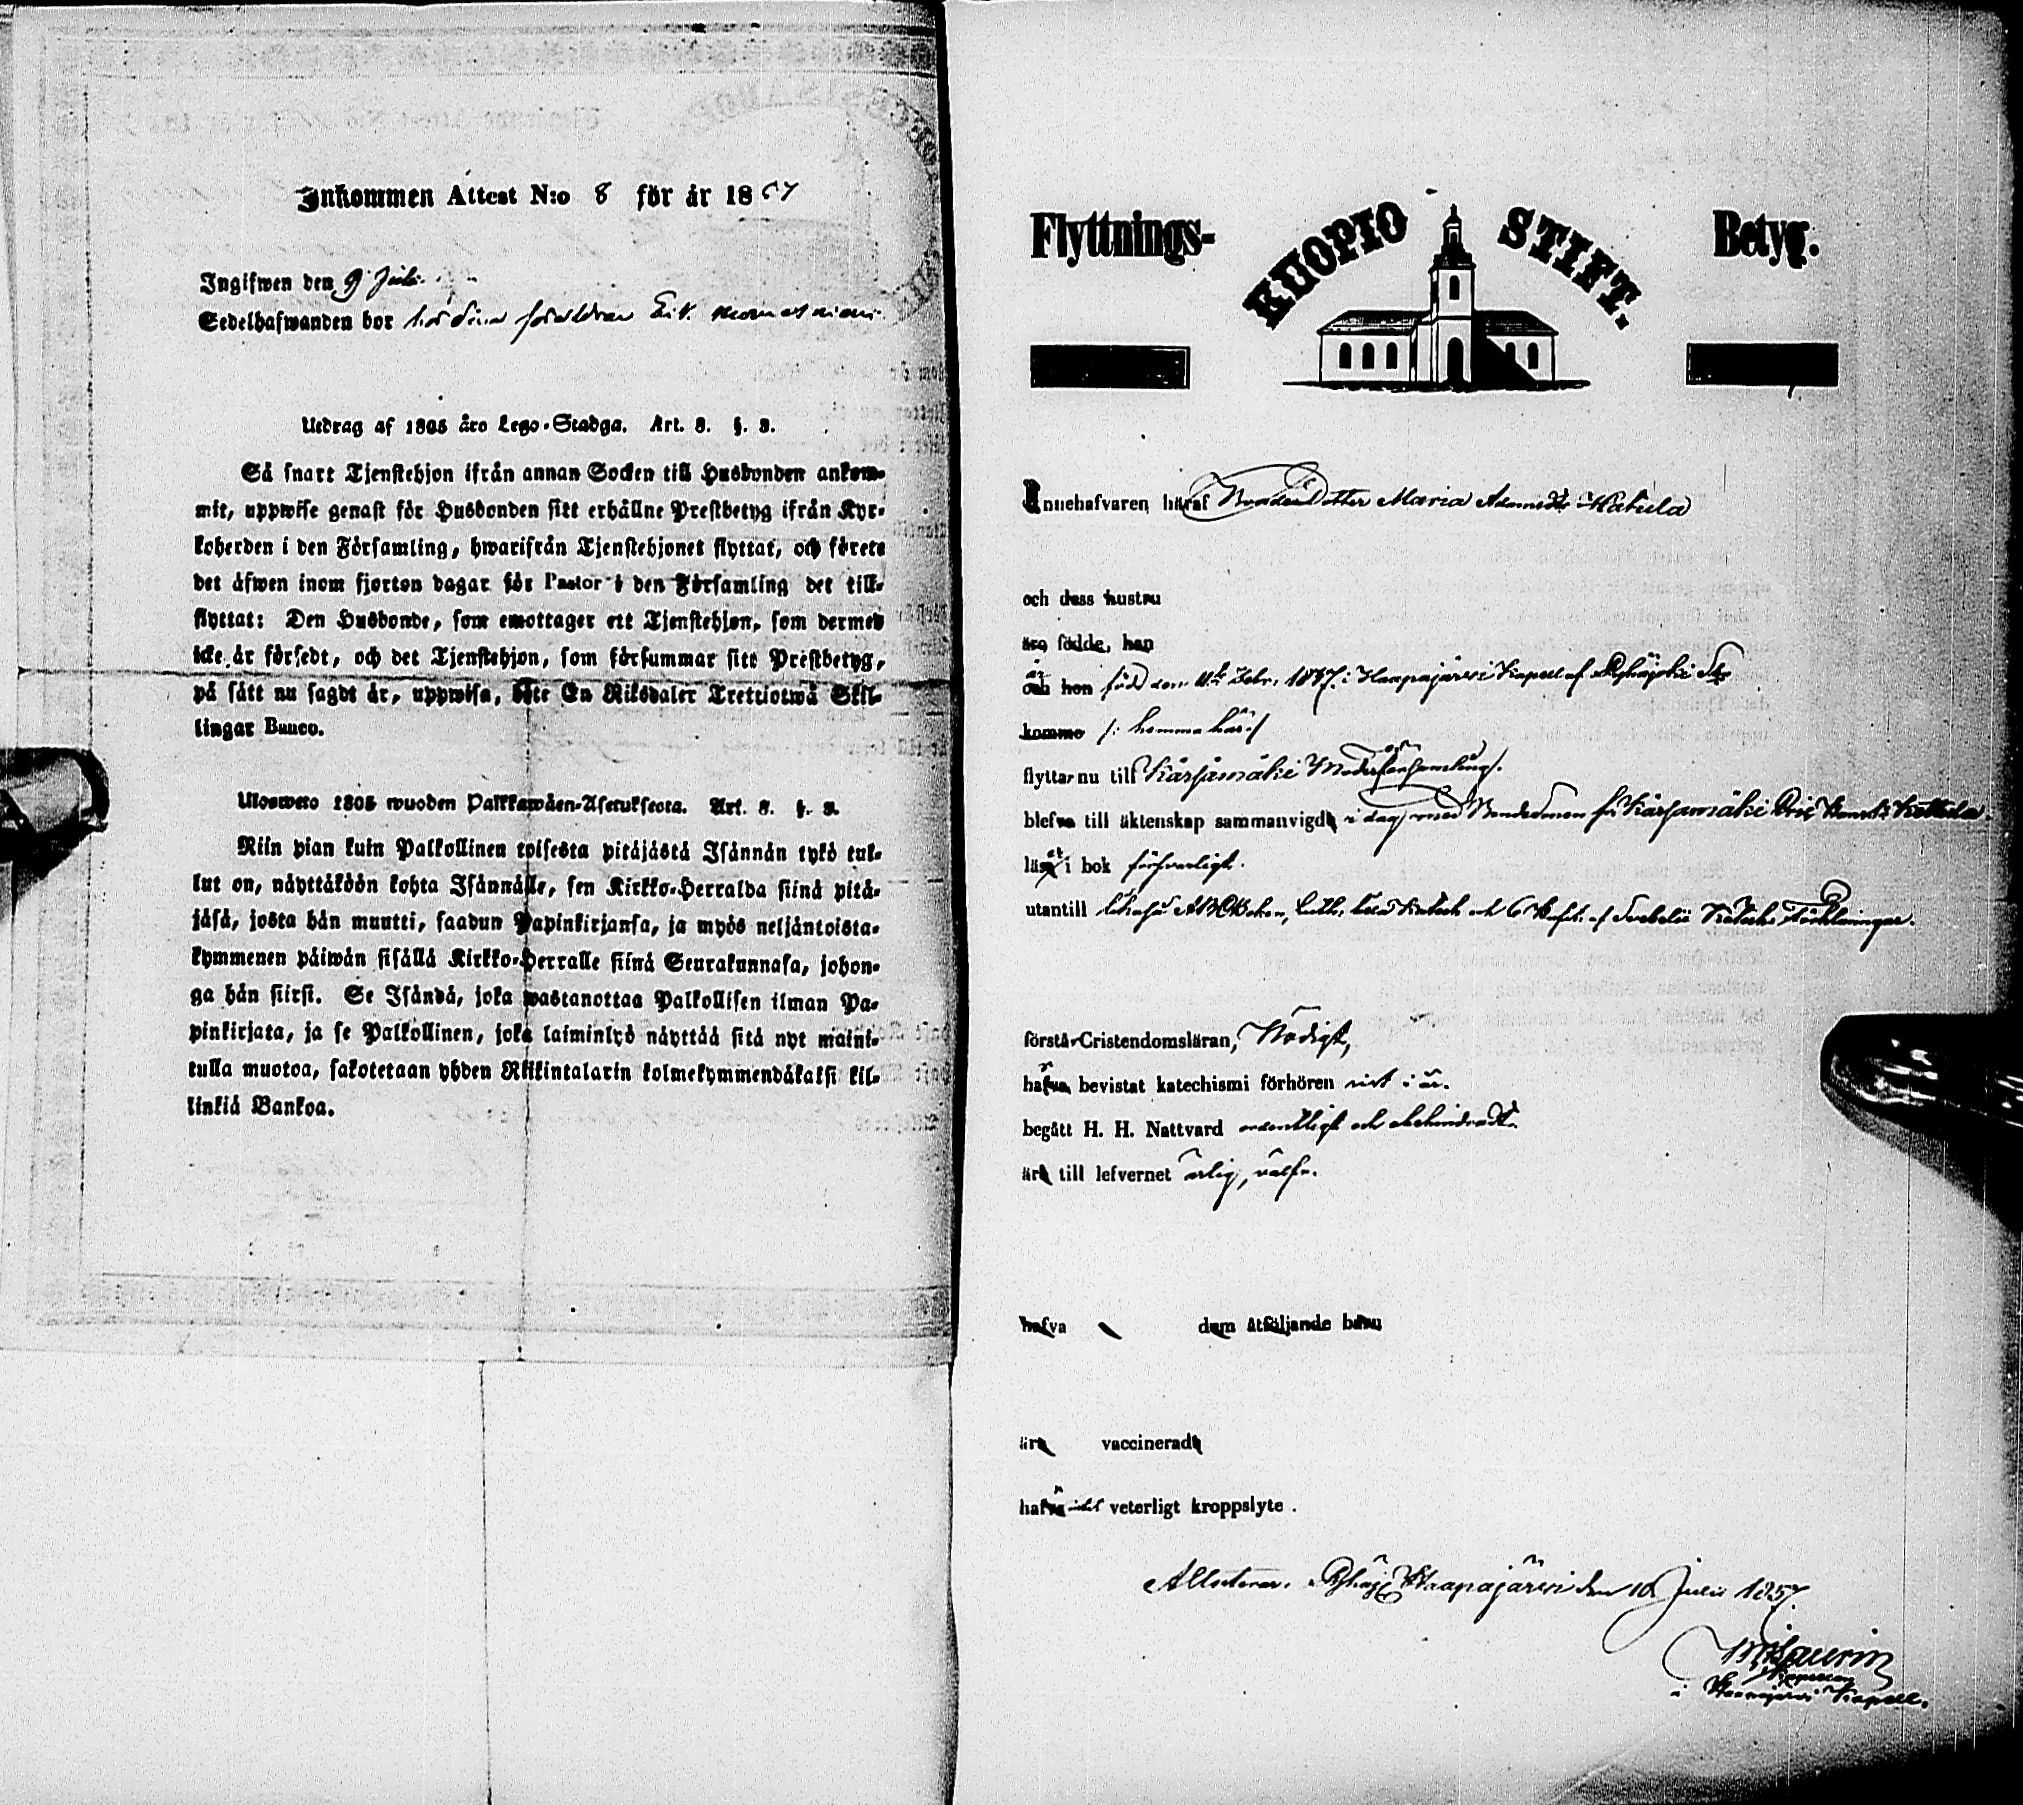 Inkommen Attest N:o 8 för år 1857
Ingifwen den 9 Juli
Sedelhafwanden bor hos sina föräldrar
Utdrag af 1805 års Lego-Stadga. Art. 3. §. 3.
Så snart Tjenstehjon ifrån annan Socken till Husbonden ankom-
mit, uppwise genast för Husbonden sitt erhållne Prestbetyg ifrån Kyr-
koherden i den Församling, hwarifrån Tjenstehjonet flyttat, och förete
det äfwen inom fjorton dagar för Pastor i den Församling det till-
flyttat: Den Husbonde, som emottager ett Tjenstehjon, som dermed
icke är försedt, och det Tjenstehjon, som försummar sitt Prestbetyg,
på sätt nu sagdt är, uppwisa, böte En Riksdaler Trettiotwå Skil-
lingar Banco.
Ulosweto 1805 wuoden Palkkawäen-Asetuksesta. Art. 3. §. 3.
Niin pian kuin Palkollinen toisesta pitäjästä Isännän tykö tul-
lut on, näyttäköön kohta Isännälle, sen Kirkko-Herralda siinä pitä-
jäsä, josta hän muutti, saadun Papinkirjansa, ja myös neljäntoista-
kymmenen päiwän sisällä Kirkko-Herralle siinä Seurakunnasa, johon-
ga hän siirsi. Se Isändä, joka wastanottaa Palkollisen ilman Pa-
pinkirjata, ja se Palkollinen, joka laiminlyö näyttää sitä nyt maini-
tulla muotoa, sakotetaan yhden Riikintalarin kolmekymmendäkaksi kil-
linkiä Bankoa.
Flyttnings- KUOPIO STIFT. Betyg.
Innehafvaren häraf Bondedotter Maria Adamsdr Hakula
och dess hustru
äro födde, han
och hon född den 11te Febr. 1837 i Haapajärvi Kapell af Pyhäjoki Sn
komma /: hemma här :/
flyttar nu till Kärsämäki Moderförsamling.
blefvo till äktenskap sammanvigde i dag med Bondesonen från Kärsämäki
läser i bok försvarligt.
utantill
förstår Cristendomsläran, Nödigt,
hafva bevistat katechismi förhören sist i år.
begått H. H. Nattvard ordentligt och obehindradt.
äro till lefvernet ärlig, välfr.
hafva dem åtföljande barn
äro vaccinerade
hafva intet veterligt kroppslyte.
Attesterar. Pyhäj. Haapajärvi den 10 Julii 1857.
Kapellan
i Haapajärvi Kapell.